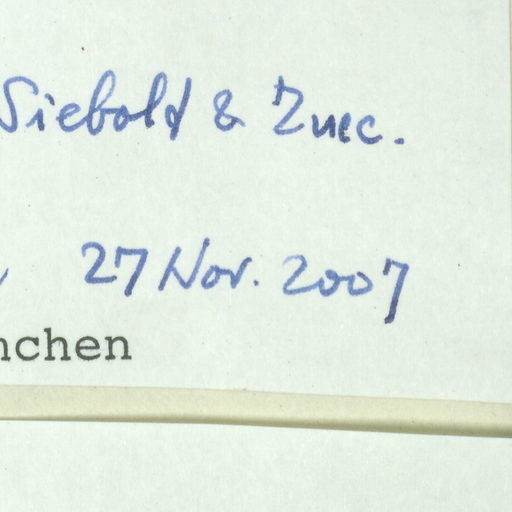 Siebold & Zucc.
27 Nov. 2007
nchen